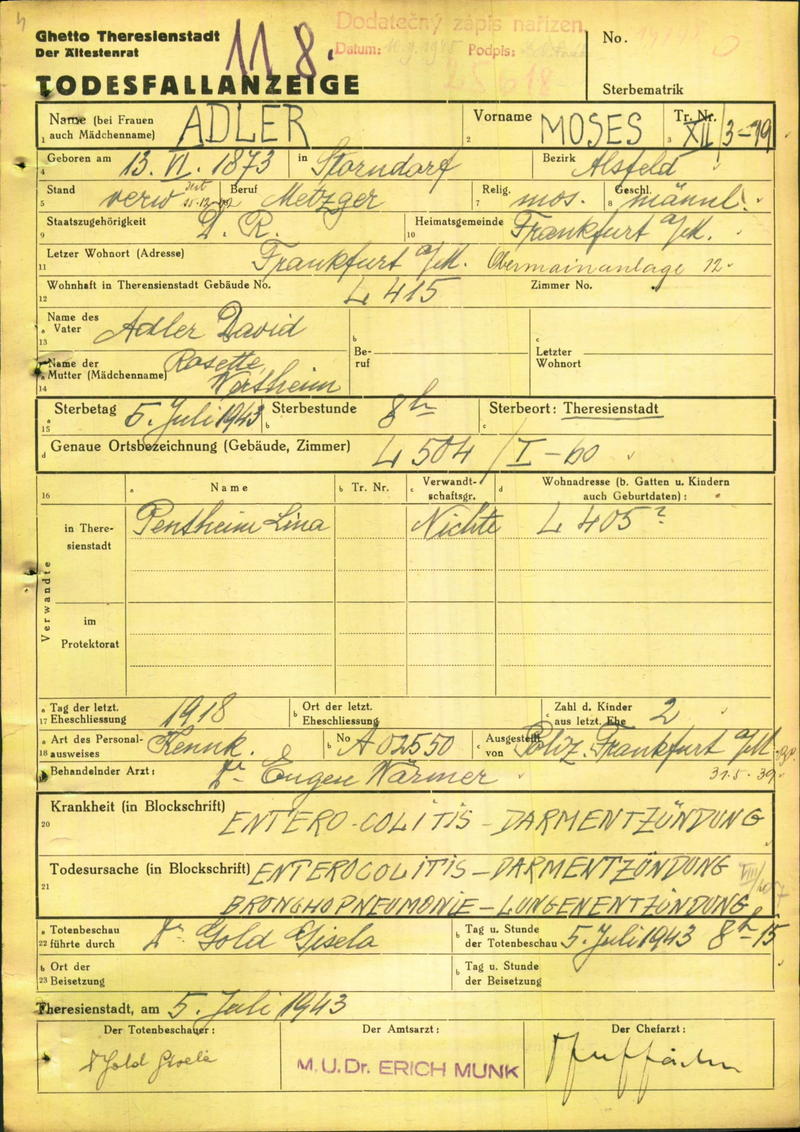 Ghetto Theresienstadt
Der Ältestenrat
118.
Dodatečný zápis nařízen
Datum: Podpis:
No.
TODESFALLANZEIGE
Sterbematrik
1 Name (bei Frauen auch Mädchenname) ADLER 2 Vorname MOSES 3 Tr. Nr. XII/3-19
4 Geboren am 13. VI. 1873 in Storndorf Bezirk Alsfeld
5 Stand verw Beruf Metzger 7 Relig. mos. 8 Geschl. männl.
9 Staatszugehörigkeit D. R. 10 Heimatsgemeinde Frankfurt a/M.
11 Letzer Wohnort (Adresse) Frankfurt a/M. Obermainanlage 12
12 Wohnhaft in Theresienstadt Gebäude No. L 415 Zimmer No.
13 a Name des Vater Adler David b Beruf c Letzter Wohnort
14 a Name der Mutter (Mädchenname) Rosette Wertheim
15 a Sterbetag 5. Juli 1943 b Sterbestunde 8h c Sterbeort: Theresienstadt
d Genaue Ortsbezeichnung (Gebäude, Zimmer) L 504 / I-60
16 a Name b Tr. Nr. c Verwandtschaftsgr. d Wohnadresse (b. Gatten u. Kindern auch Geburtdaten):
Verwandte
in Theresienstadt Pentheim Lina Nichte L 405?
im Protektorat
17 a Tag der letzt. Eheschliessung 1918 b Ort der letzt. Eheschliessung c Zahl d. Kinder aus letzt. Ehe 2
18 a Art des Personalausweises Kennk. b No A 02550 c Ausgestellt von Poliz. Frankfurt a/M
31.5.39
19 Behandelnder Arzt: Dr. Eugen Wärmer
20 Krankheit (in Blockschrift) ENTERO-COLITIS - DARMENTZÜNDUNG
21 Todesursache (in Blockschrift) ENTEROCOLITIS - DARMENTZÜNDUNG
BRONCHOPNEUMONIE - LUNGENENTZÜNDUNG
22 a Totenbeschau führte durch Dr. Gold Gisela b Tag u. Stunde der Totenbeschau 5. Juli 1943 8h 15
23 b Ort der Beisetzung b Tag u. Stunde der Beisetzung
Theresienstadt, am 5. Juli 1943
Der Totenbeschauer: Der Amtsarzt: Der Chefarzt:
Dr Gold Gisela M.U.Dr. ERICH MUNK